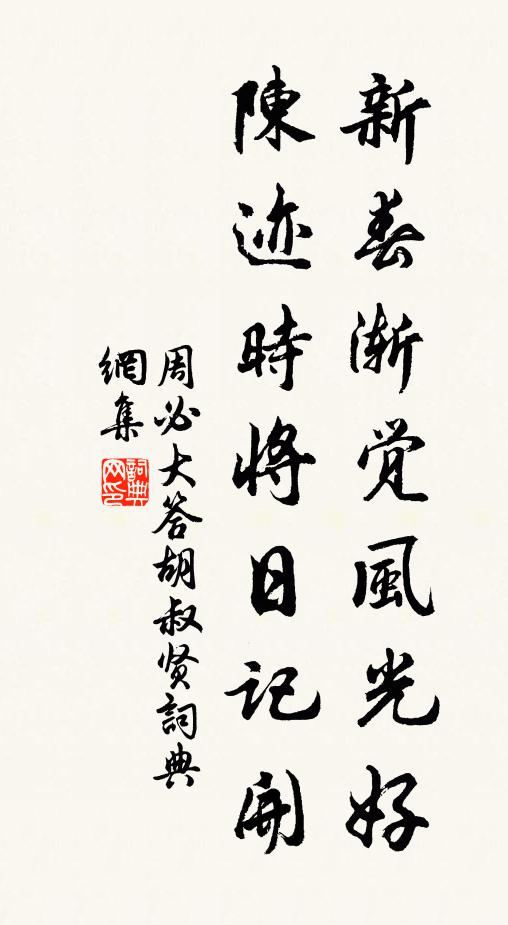 新春渐觉風光好
陳迹時將日记開
周必大答胡叔贤詞典
網集
詞典网印